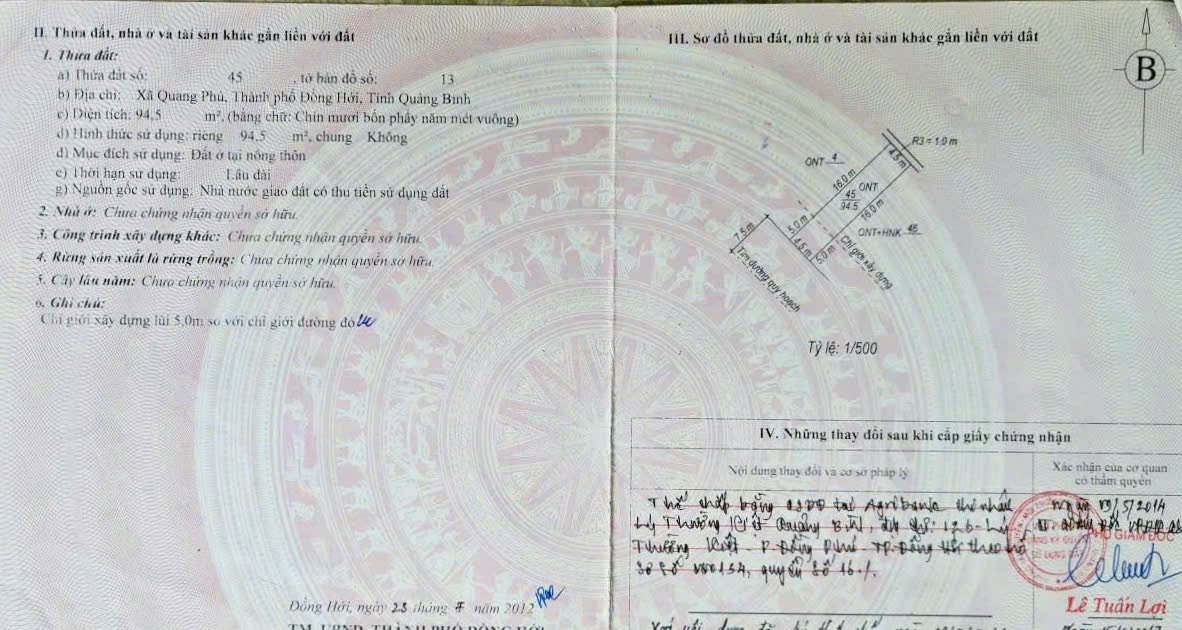 II. Thửa đất, nhà ở và tài sản khác gắn liền với đất
1. Thửa đất:
a) Thửa đất số: 45 , tờ bản đồ số: 13
b) Địa chỉ: Xã Quang Phú, Thành phố Đồng Hới, Tỉnh Quảng Bình
c) Diện tích: 94,5 m², (bằng chữ: Chín mươi bốn phẩy năm mét vuông)
d) Hình thức sử dụng: riêng 94,5 m², chung Không
đ) Mục đích sử dụng: Đất ở tại nông thôn
e) Thời hạn sử dụng: Lâu dài
g) Nguồn gốc sử dụng: Nhà nước giao đất có thu tiền sử dụng đất
2. Nhà ở: Chưa chứng nhận quyền sở hữu.
3. Công trình xây dựng khác: Chưa chứng nhận quyền sở hữu.
4. Rừng sản xuất là rừng trồng: Chưa chứng nhận quyền sở hữu.
5. Cây lâu năm: Chưa chứng nhận quyền sở hữu.
6. Ghi chú:
Chỉ giới xây dựng lùi 5,0m so với chỉ giới đường đỏ
Đồng Hới, ngày 23 tháng 7 năm 2012
TM. UBND THÀNH PHỐ ĐỒNG HỚI
III. Sơ đồ thửa đất, nhà ở và tài sản khác gắn liền với đất
B
R3=1.0 m
4.5 m
ONT 4
16.0 m
45 ONT
94.5
16.0 m
ONT+HNK 46
5.0 m
7.5 m
4.5 m
5.0 m
Chỉ giới xây dựng
Tim đường quy hoạch
Tỷ lệ: 1/500
IV. Những thay đổi sau khi cấp giấy chứng nhận
Nội dung thay đổi và cơ sở pháp lý
Xác nhận của cơ quan có thẩm quyền
Thế chấp bằng QSDĐ tại Agribank chi nhánh
Lý Thường Kiệt Quảng Bình, địa chỉ: 126 Lý
Thường Kiệt - P. Đồng Phú TP. Đồng Hới theo hồ
sơ số 000134, quyển số 16./.
5/2014
PHÓ GIÁM ĐỐC
Lê Tuấn Lợi